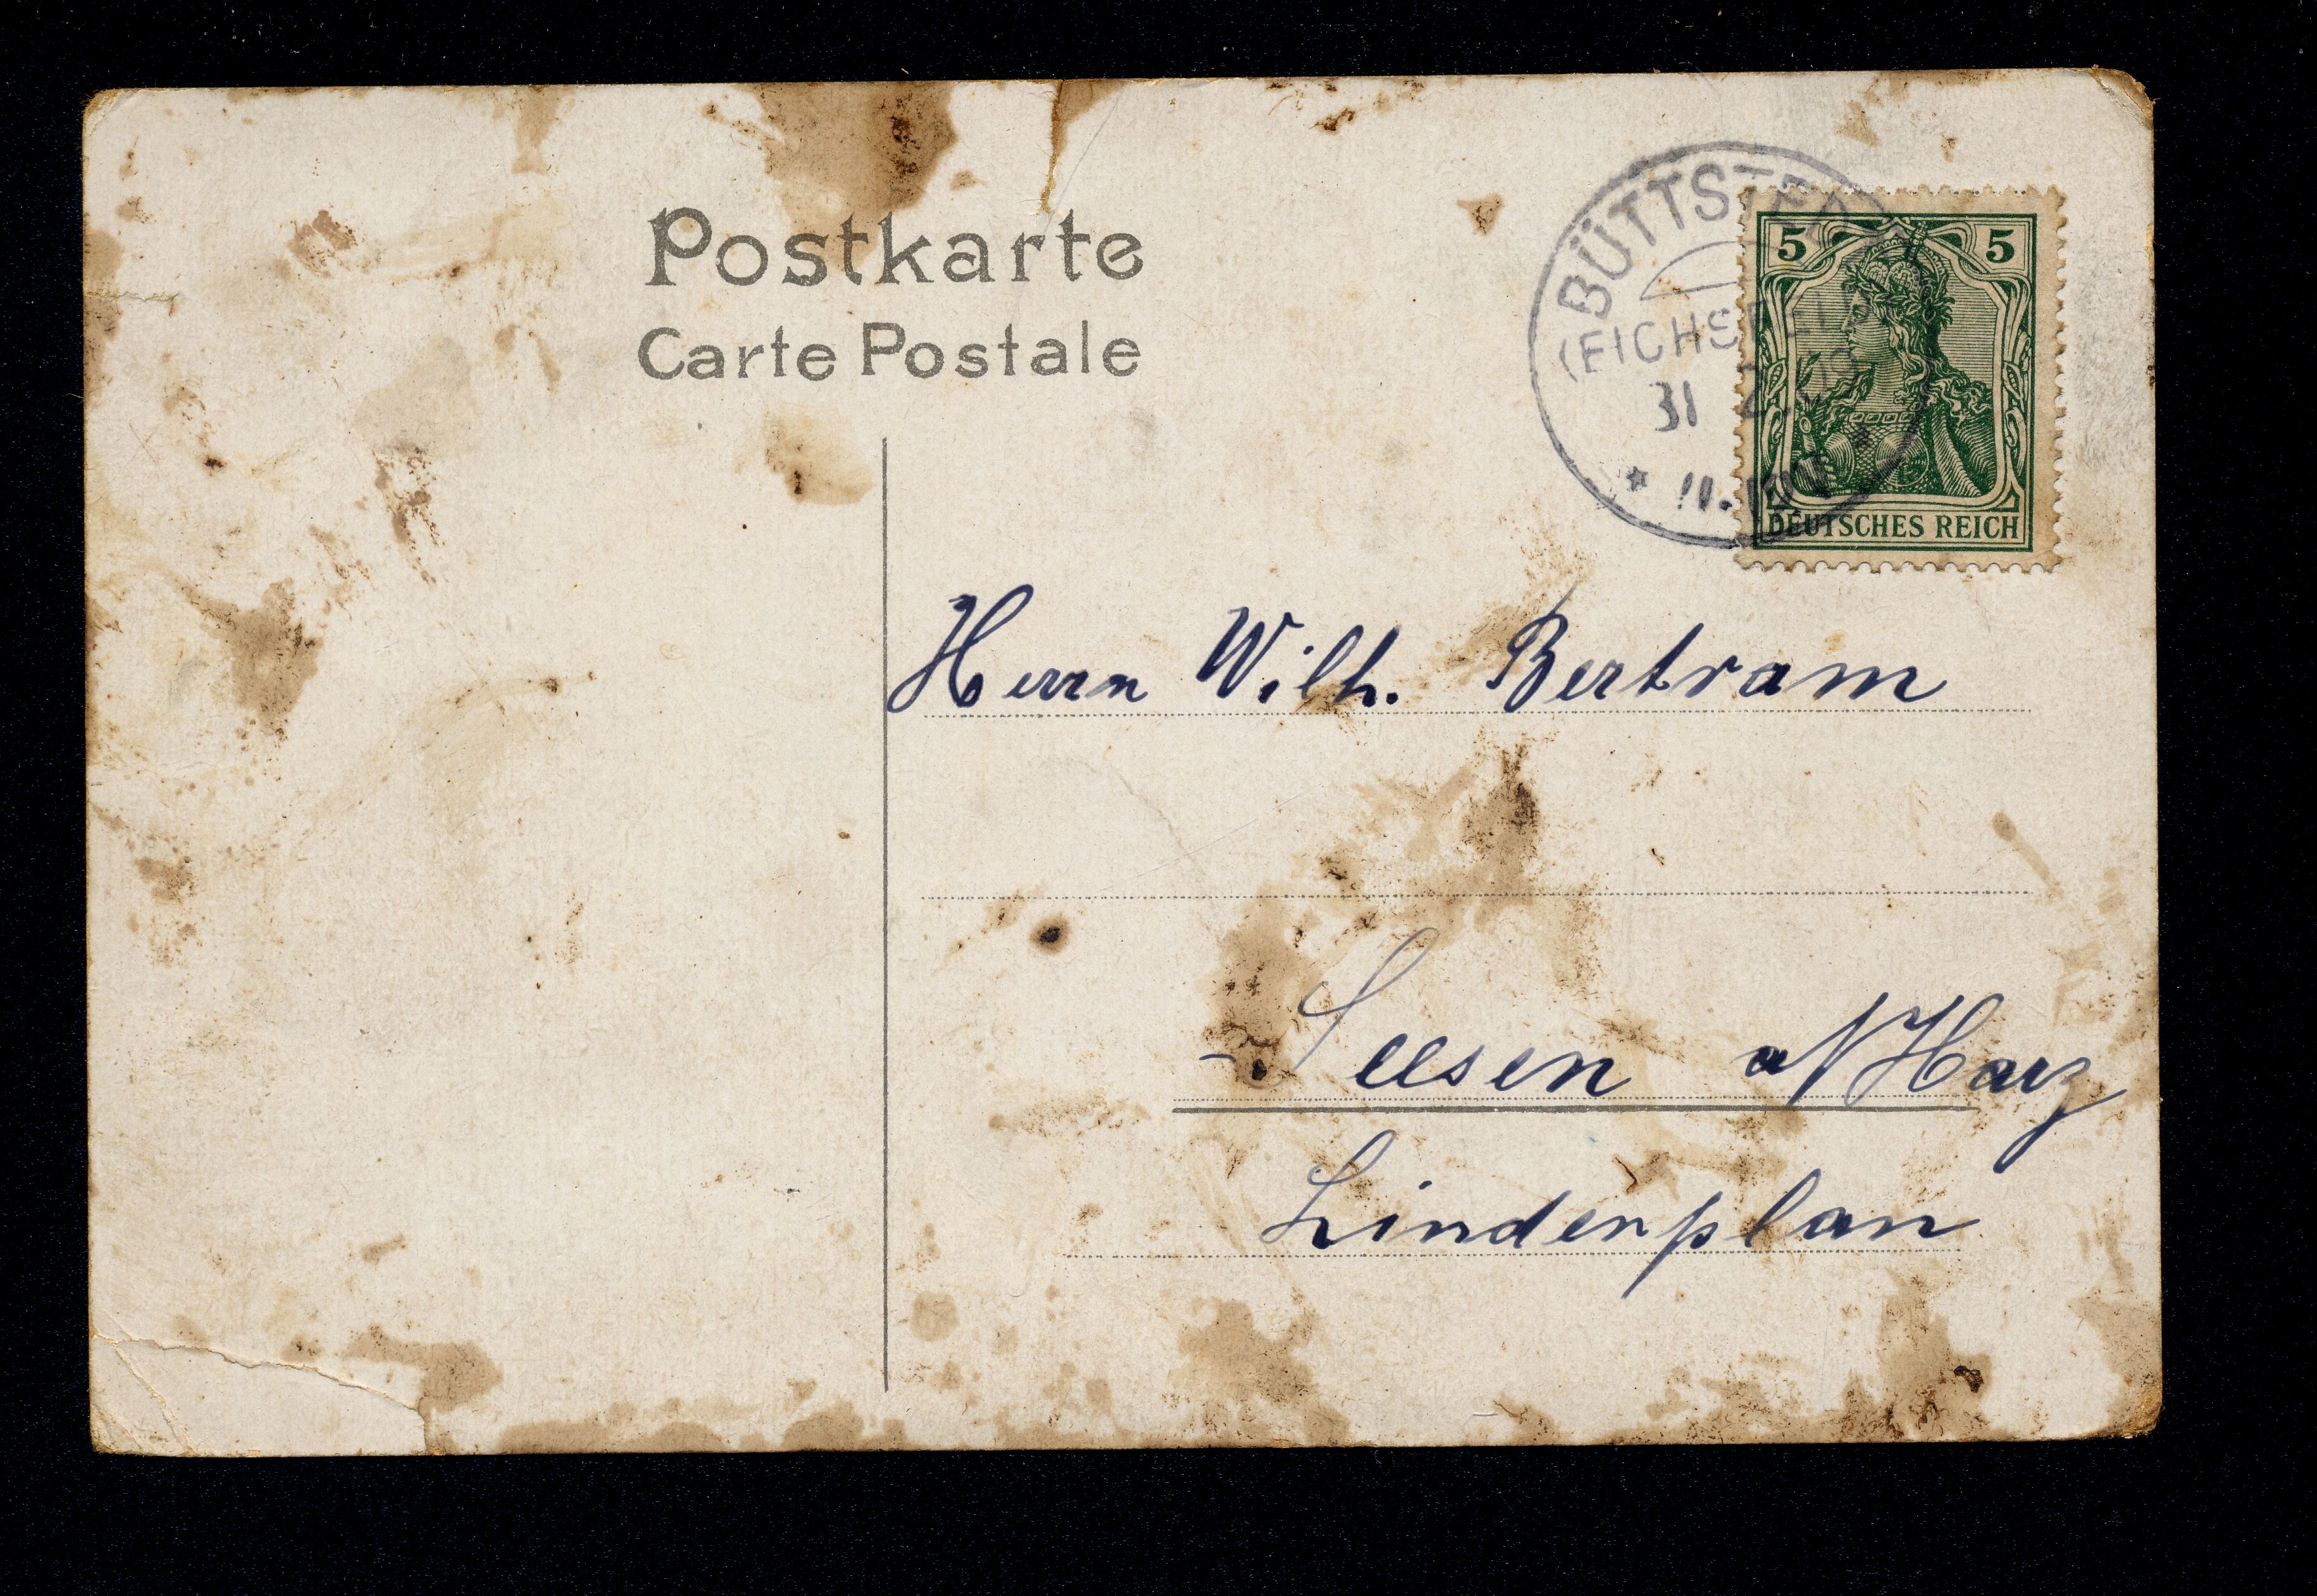 Postkarte
Carte Postale
BÜTTSTEDT
(EICHSFELD)
31
5 5
DEUTSCHES REICH
Herrn Wilh. Bertram
Seesen a/Harz
Lindenplan